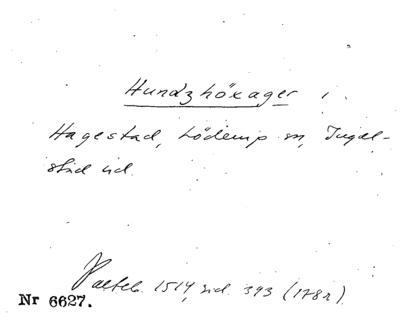 Hundzhöxager i
Hagestad, Löderup sn, Ingel-
stad hd.
Palteb. 1514, sid. 393 (178 r).
Nr 6627.